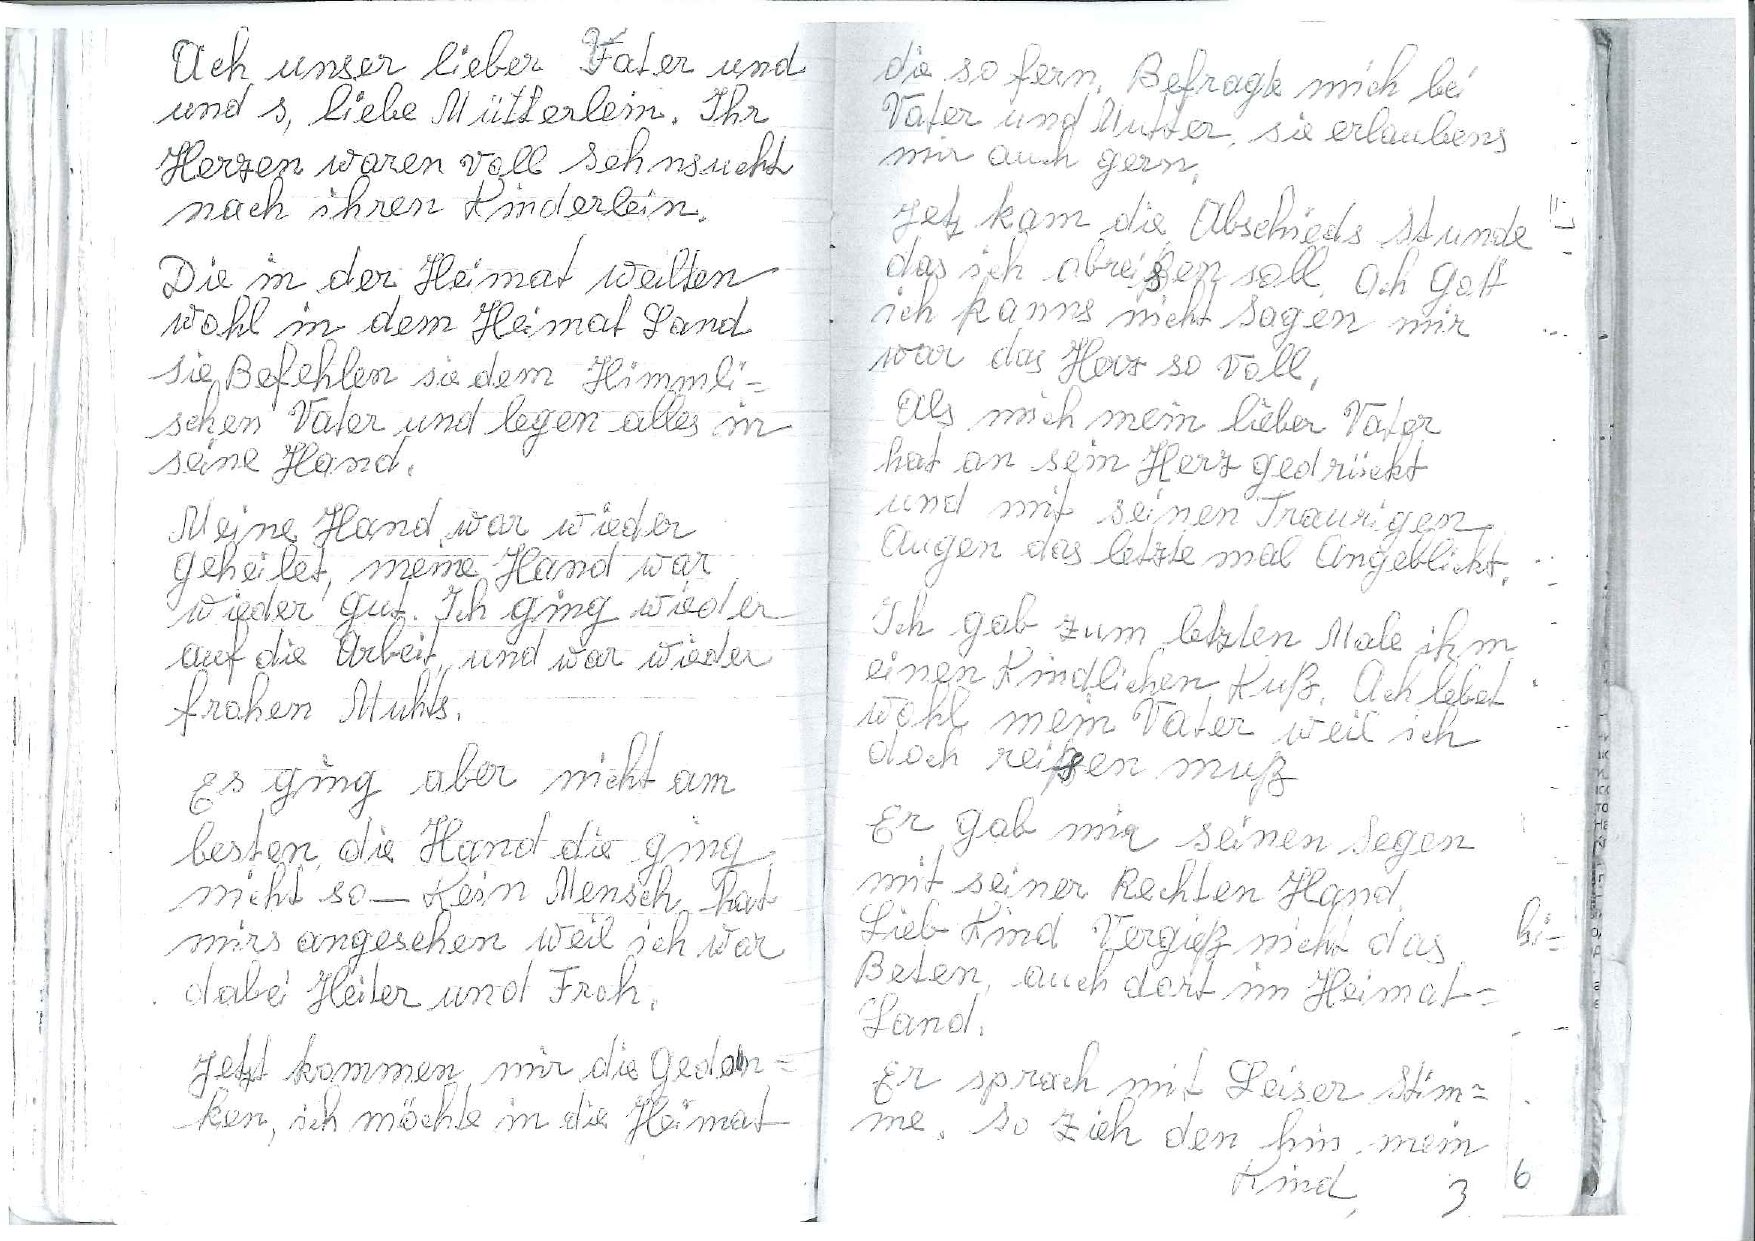 Ach unser lieber Vater und
und s, liebe Mütterlein. Ihr
Herzen waren voll sehnsucht
nach ihren Kinderlein.
Die in der Heimat weilten
wohl in dem Heimat Land
sie Befehlen sie dem Himmli=
schen Vater und legen alles in
seine Hand.
Meine Hand war wieder
geheilet, meine Hand war
wieder gut. Ich ging wieder
auf die Arbeit, und war wieder
frohen Muhts.
Es ging aber nicht am
besten, die Hand die ging
nicht so — Kein Mensch hat
mirs angesehen weil ich war
dabei Heiter und Froh.
Jetzt kommen mir die Gedan=
ken, ich möchte in die Heimat
die so fern. Befragte mich bei
Vater und Mutter, sie erlaubens
mir auch gern.
Jetz kam die Abschieds stunde
das ich abreisen soll. Ach Gott
ich kanns nicht sagen mir
war das Herz so voll,
Als mich mein lieber Vater
hat an sein Herz gedrückt
und mit seinen Traurigen
Augen das letzte mal Angeblickt.
Ich gab zum letzten Male ihm
einen Kindlichen Kuß. Ach lebet
wohl mein Vater weil ich
doch reisen muß
Er gab mir seinen Segen
mit seiner Rechten Hand.
Lieb Kind Vergieß nicht das
Beten, auch dort im Heimat=
Land.
Er sprach mit Leiser Stim=
me. So zieh den hin mein
Kind,
3
6